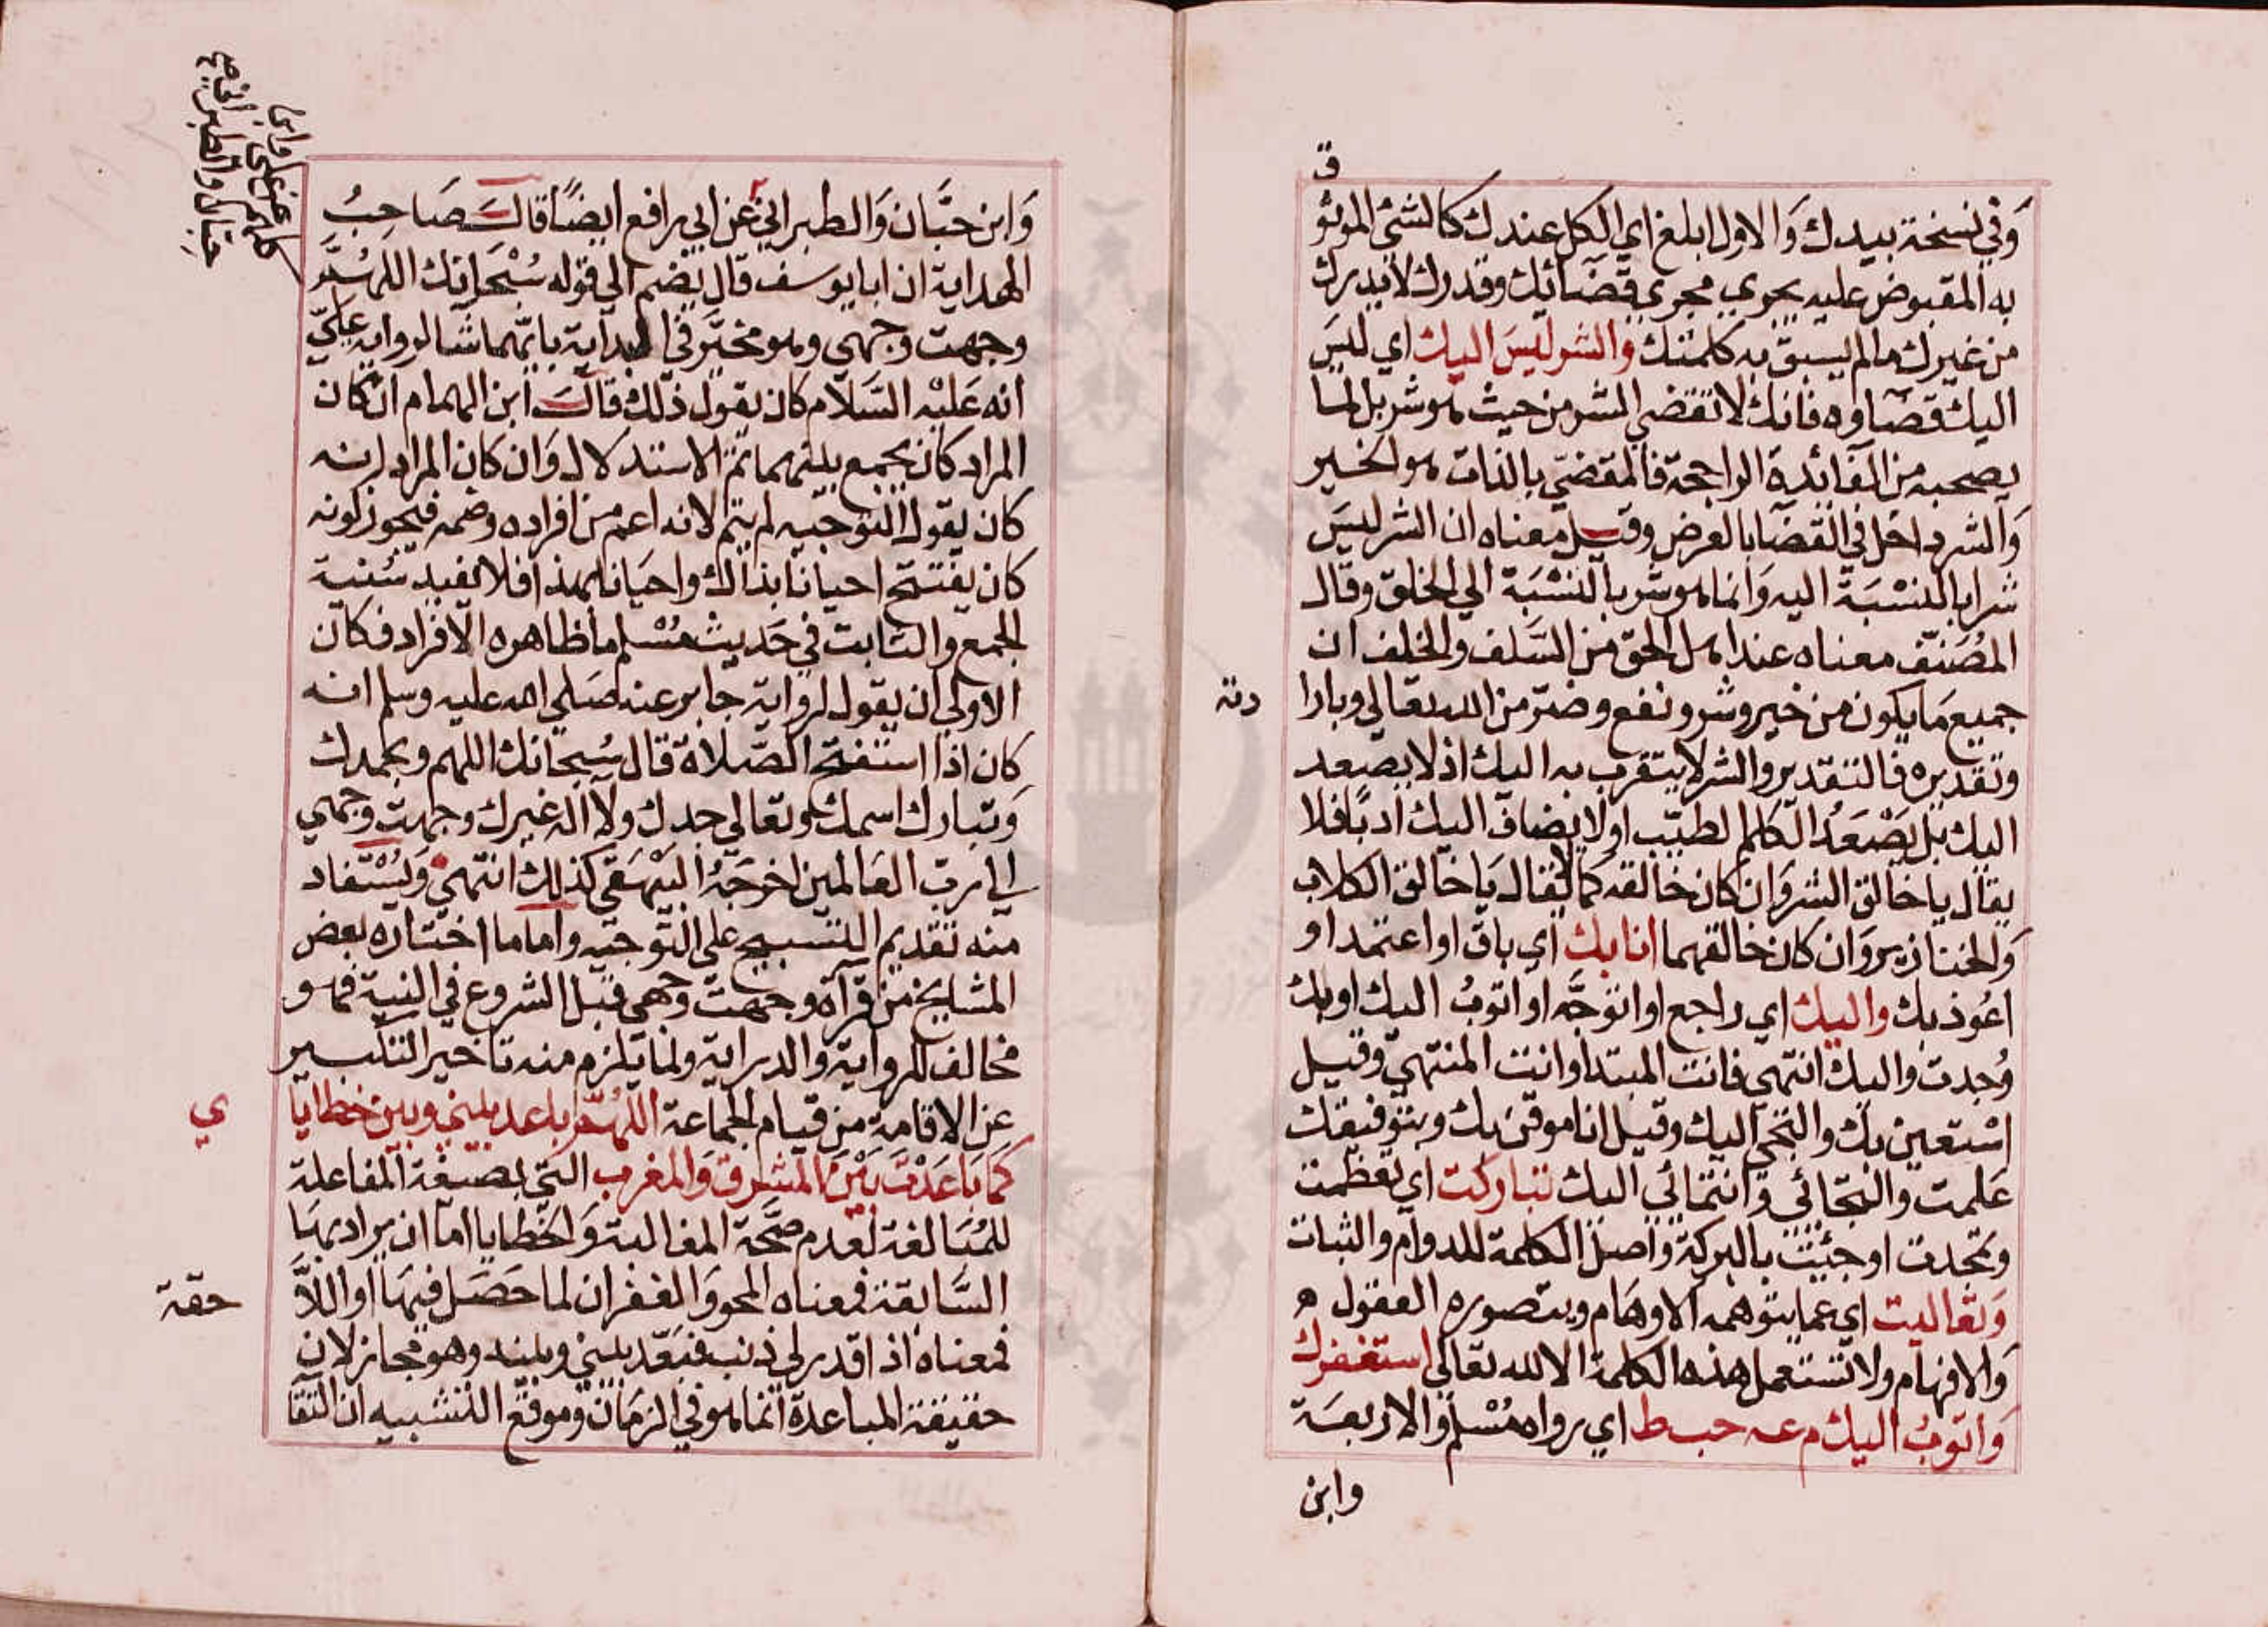 ق
وفي نسخة بيدك والاول ابلغ اي الكل عندك كالشئ الموثو
به المقبوض عليه يجري مجري قضائك وقدرك لا يدرك
من غيرك ما لم يسبق به كلمتك والشر ليس اليك اي ليس
اليك قضاوه فانك لا تقضي الشر من حيث هو شر بل لما
يصحبه من الفائدة الراجحة فالمقضي بالذات هو الخير
والشر داخل في القضا بالعرض وقيل معناه ان الشر ليس
شرا بالنسبة اليه وانما هو شر بالنسبة الي الخلق وقال
المصنف معناه عند اهل الحق من السلف والخلف ان
جميع ما يكون من خير وشر ونفع وضر من الله تعالي وبارا
دته
وتقديره فالتقدير والشر لا يتقرب به اليك اذ لا يصعد
اليك بل يصعد الكلم الطيب او لا يضاف اليك ادبا فلا
يقال يا خالق الشر وان كان خالقه كما لا يقال يا خالق الكلاب
والخنازير وان كان خالقهما انا بك اي باق او اعتمد او
اعوذ بك واليك اي راجع او اتوجه او اتوب اليك او بك
وجدت واليك انتهي فانت المبتدا وانت المنتهي وقيل
استعين بك والتجي اليك وقيل انا موقن بك وبتوفيقك
علمت والتجائي وانتمائي اليك تباركت اي تعظمت
وتمجدت او جئت بالبركة واصل الكلمة للدوام والثبات
وتعاليت اي عما يتوهمه الاوهام ويتصوره العقول
والافهام ولا تستعمل هذه الكلمة الا لله تعالي استغفرك
واتوب اليك م عه حب ط اي رواه مسلم والاربعة
وابن
وابن حبان والطبراني عن ابي رافع ايضا قال صاحب
الهداية ان ابا يوسف قال يضم الي قوله سبحانك اللهم
وجهت وجهي وهو مخير في البداية بايهما شا لرواية علي
انه عليه السلام كان يقول ذلك قال ابن الهمام ان كان
المراد كان يجمع بينهما تم الاستدلال وان كان المراد انه
كان يقول التوجيه لم يتم لانه اعم من افراده وضمه فيجوز كونه
كان يفتتح احيانا بذاك واحيانا بهذا فلا يفيد سنية
الجمع والثابت في حديث مسلم ما ظاهره الافراد فكان
الاولي ان يقول لرواية جابر عنه صلي الله عليه وسلم انه
كان اذا استفتح الصلاة قال سبحانك اللهم وبحمدك
وتبارك اسمك وتعالي جدك ولا اله غيرك وجهت وجهي
الي رب العالمين اخرجه البيهقي كذلك انتهي ويستفاد
منه تقديم التسبيح علي التوجيه واما ما اختاره بعض
المشايخ من قرآة وجهت وجهي قبل الشروع في النية فهو
مخالف للرواية والدراية ولما يلزم منه تاخير التكبير
عن الاقامة من قيام الجماعة اللهم باعد بيني وبين خطايا
ي
كما باعدت بين المشرق والمغرب التي بصيغة المفاعلة
للمبالغة لعدم صحة المغالبة والخطايا اما ان يراد بها
السابقة فمعناه المحو والغفران لما حصل فيها او اللا
حقة
فمعناه اذا قدر لي ذنب فبعد بيني وبينه وهو مجاز لان
حقيقة المباعدة انما هو في الزمان وموقع التشبيه ان التقا